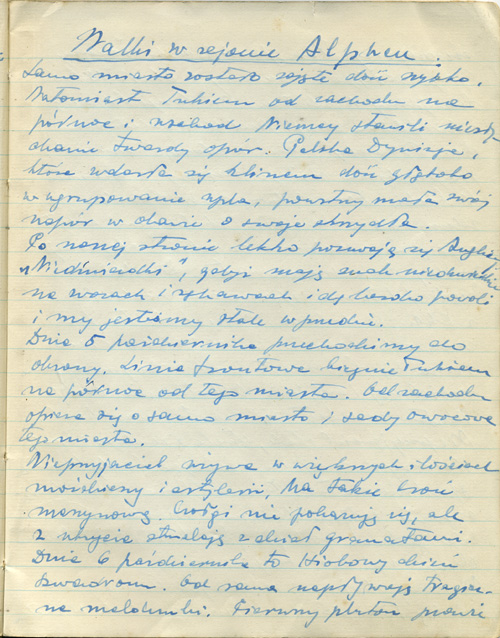 Walki w rejonie Alphen.
Samo miasto zostało zajęte dość szybko.
Natomiast łukiem od zachodu na
północ i wschód Niemcy stawili niesły-
chanie twardy opór. Polska Dywizja,
która wdarła się klinem dość głęboko
w ugrupowanie npla, powstrzymała swój
napór w obawie o swoje skrzydła.
Po naszej stronie lekko posuwają się Anglicy
"Niedźwiadki", gdyż mają znak niedźwiadka
na wozach i rękawach idą bardzo powoli
i my jesteśmy stale w przodzie.
Dnia 5 października przechodzimy do
obrony. Linia frontowa biegnie łukiem
na północ od tego miasta. Od zachodu
opiera się o samo miasto i sady owocowe
tego miasta.
Nieprzyjaciel używa w większych ilościach
moździerzy i artylerii, na także broń
maszynową. Czołgi nie pokazują się, ale
z ukrycia strzelają z dział granatami.
Dnia 6 października to Hiobowy dzień
szwadronu. Od rana napływają tragicz-
ne meldunki. Pierwszy pluton